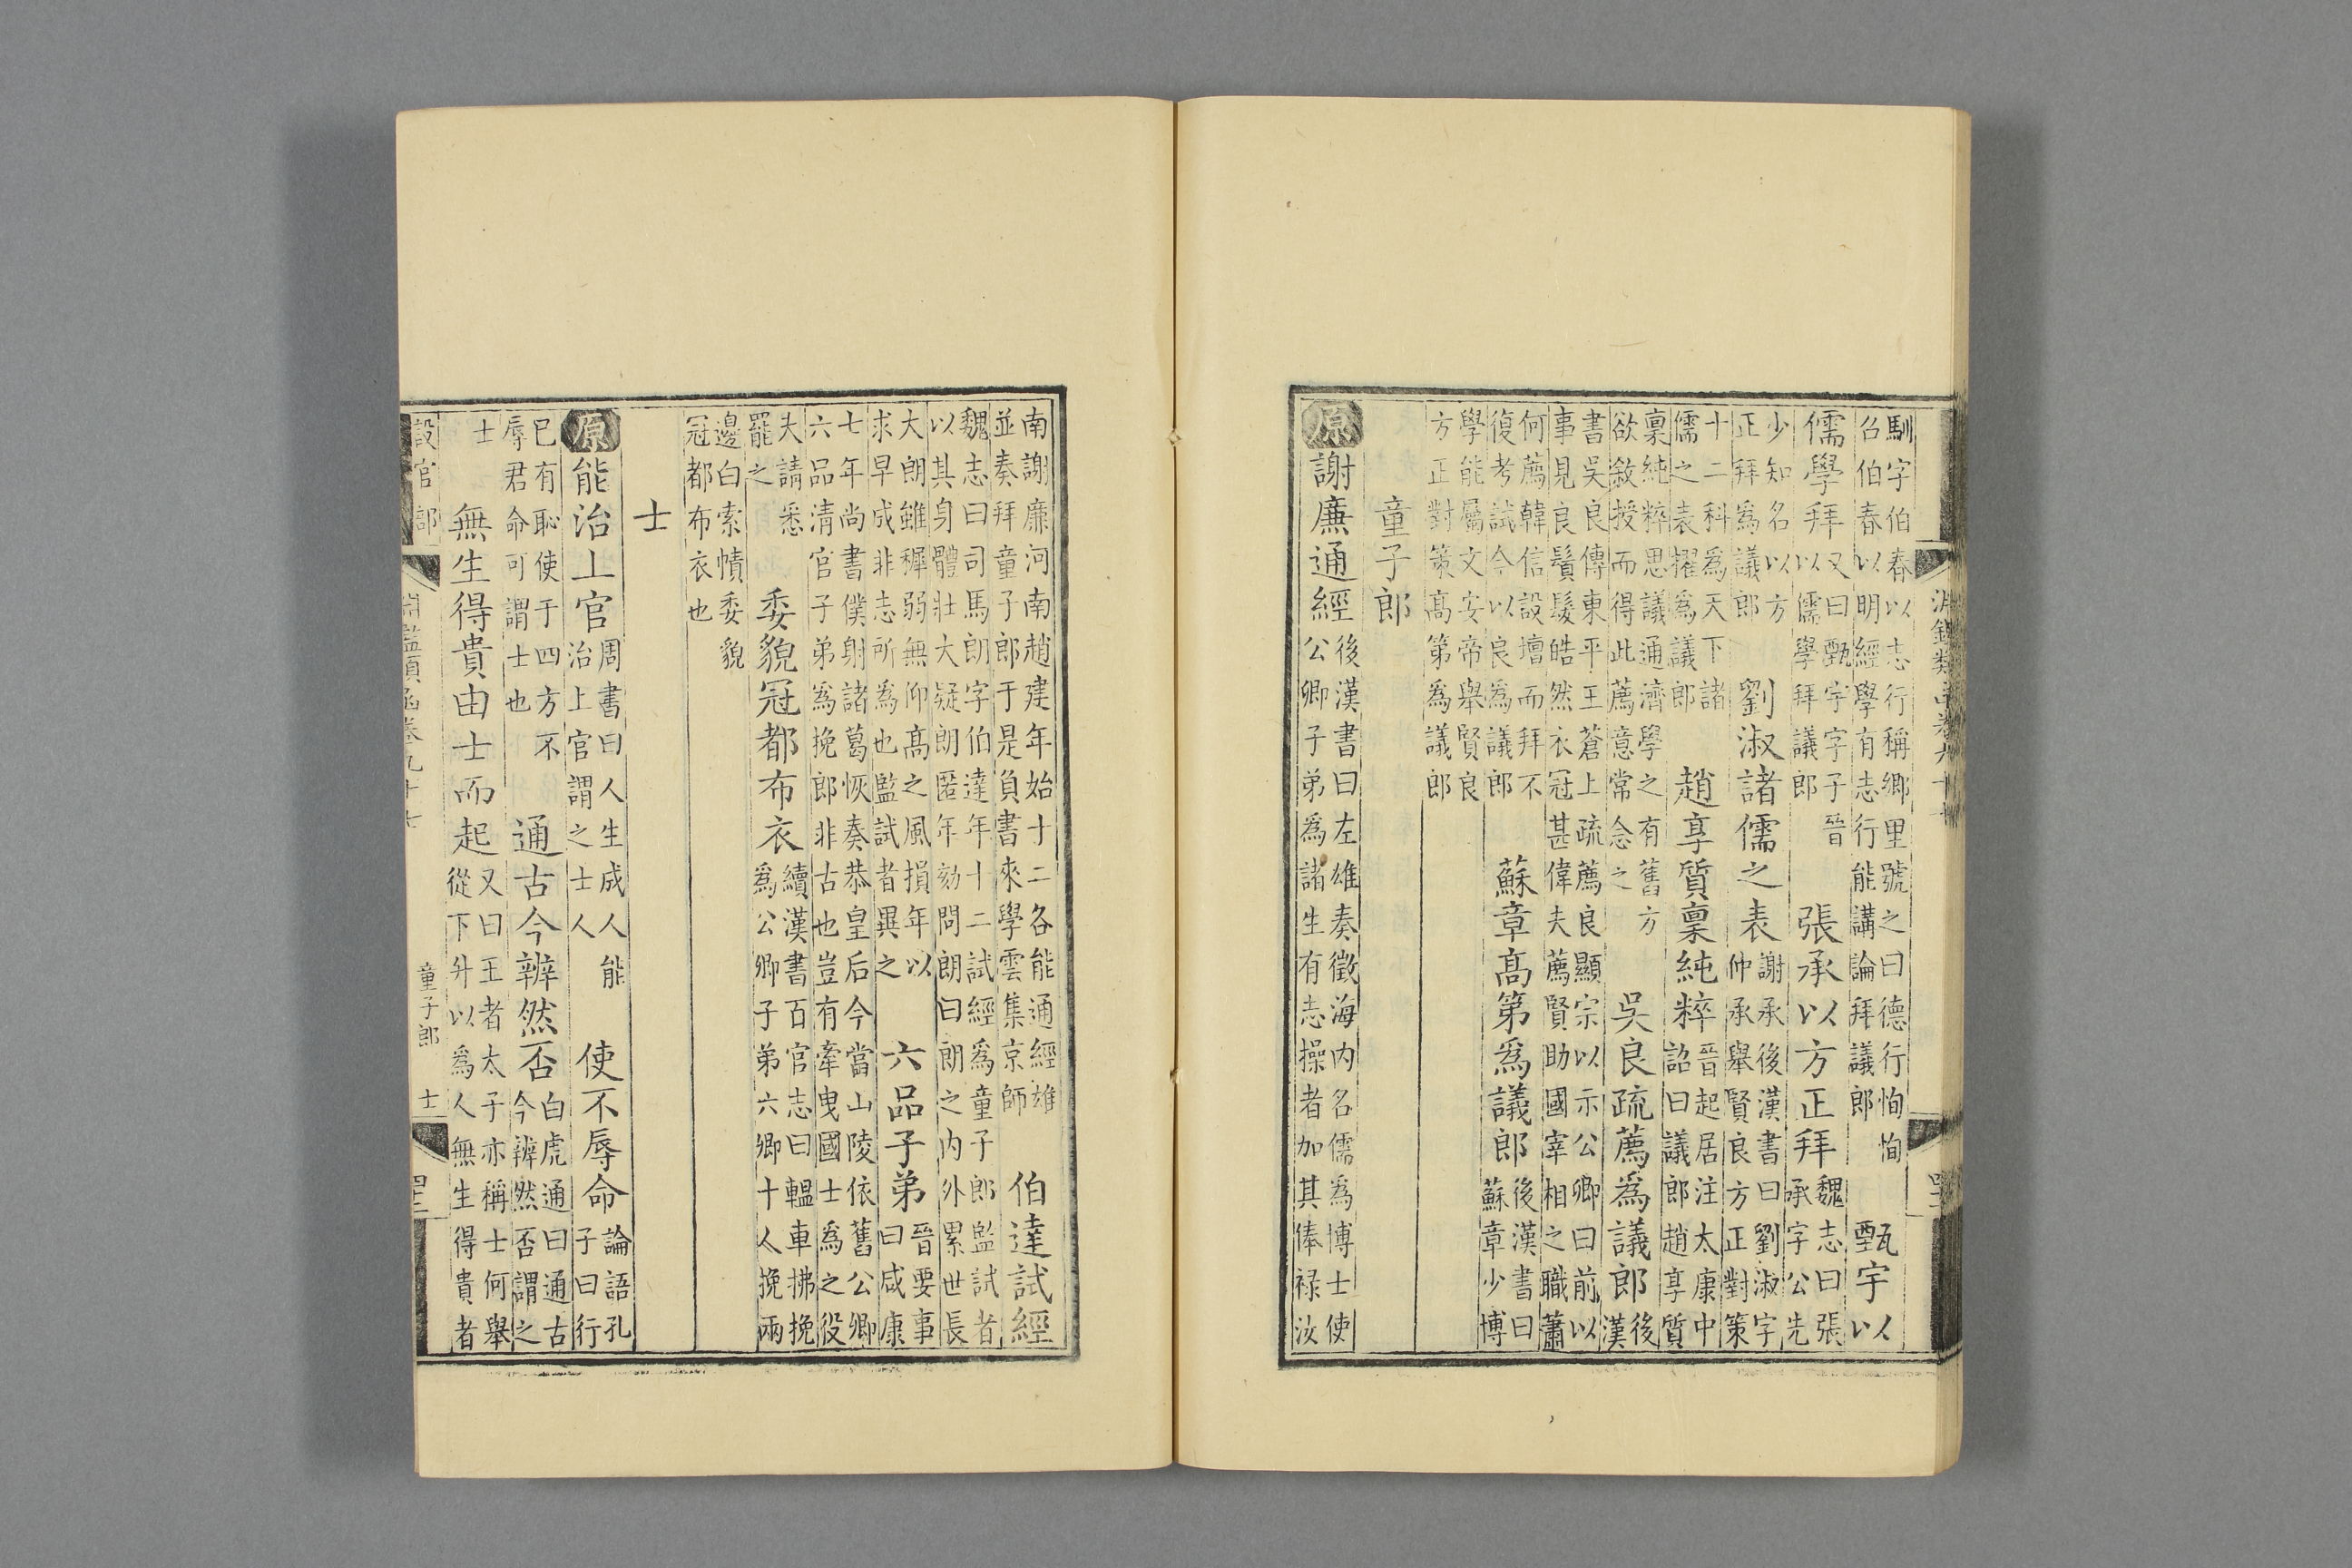 馴字伯春以志行稱鄉里號之曰德行恂恂 甄宇以
召伯春以明經學有志行能講論拜議郎
儒學拜又曰甄字字子晉以儒學拜議郎 張承以方正拜魏志曰張承字公先
少知名以方正拜爲議郎 劉淑諸儒之表謝承後漢書曰劉淑字仲承舉賢良方正對策
十二科爲天下諸儒之表擢爲議郎 趙享質稟純粹晉起居注太康中詔曰議郎趙享質
稟純粹思議通濟學之有舊方欲敘授而得此薦意常念之 吳良疏薦爲議郎後漢
書吳良傳東平王蒼上疏薦良顯宗以示公卿曰前以
事見良鬢髮皓然衣冠甚偉夫薦賢助國宰相之職蕭
何薦韓信設壇而拜不復考試今以良爲議郎 蘇章高第爲議郎後漢書曰蘇章少博
學能屬文安帝舉賢良方正對策高第爲議郎
童子郎
原 謝廉通經後漢書曰左雄奏徵海内名儒爲博士使
公卿子弟爲諸生有志操者加其俸祿汝
淵鑑類函卷九十七
南謝廉河南趙建年始十二各能通經雄
並奏拜童子郎于是負書來學雲集京師 伯達試經
魏志曰司馬朗字伯達年十二試經爲童子郎監試者
以其身體壯大疑朗匿年劾問朗曰朗之内外累世長
大朗雖穉弱無仰高之風損年以求早成非志所爲也監試者異之 六品子弟晉要事曰咸康
七年尚書僕射諸葛恢奏恭皇后今當山陵依舊公卿
六品清官子弟爲挽郎非古也豈有牽曳國士爲之役
夫請悉罷之 委貌冠都布衣續漢書百官志曰輼車拂挽爲公卿子弟六卿十人挽兩
邊白索幘委貌冠都布衣也
士
原 能治上官周書曰人生成人人能治上官謂之士人 使不辱命論語孔子曰行
巳有恥使于四方不辱君命可謂士也 通古今辨然否白虎通曰通古今辨然否謂之
士 無生得貴由士而起又曰王者太子亦稱士何舉從下升以爲人無生得貴者
設官部
淵鑑類函卷九十七
童子郎 士